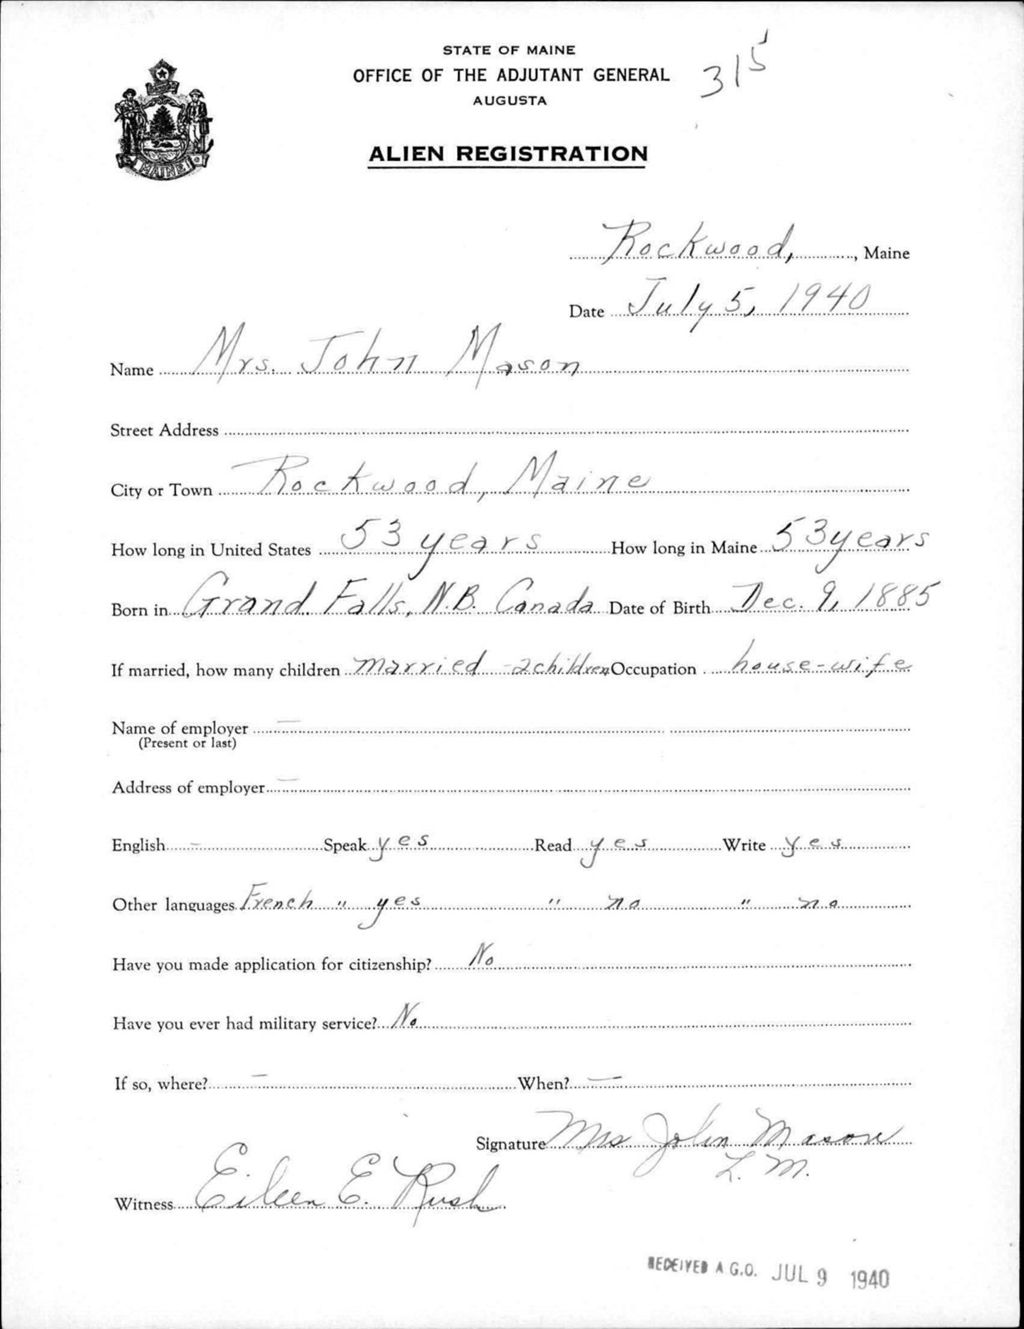 STATE OF MAINE
OFFICE OF THE ADJUTANT GENERAL
AUGUSTA
315
MAINE
ALIEN REGISTRATION
Rockwood, , Maine
Date July 5, 1940
Name Mrs. John Mason
Street Address
City or Town Rockwood, Maine
How long in United States 53 years How long in Maine 53 years
Born in Grand Falls, N.B. Canada Date of Birth Dec. 9, 1885
If married, how many children married - 2 children Occupation house-wife
Name of employer —
(Present or last)
Address of employer —
English - Speak yes Read yes Write yes
Other languages French " yes " no " no
Have you made application for citizenship? No
Have you ever had military service? No
If so, where? — When? —
Signature Mrs John Mason
L. M.
Witness Eileen E. Rush
RECEIVED A.G.O. JUL 9 1940